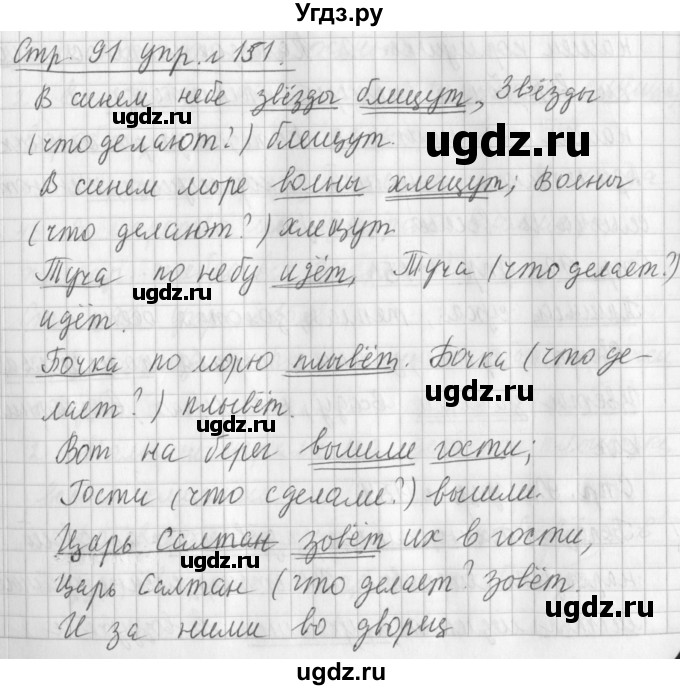 Угдз.ру
Стр. 91 упр. г 151.
В синем небе звёзды блещут, Звёзды
(что делают?) блещут.
ugdz.ru
ugdz.ru
В синем море волны хлещут; Волны
(что делают?) хлещут.
Туча по небу идёт, Туча (что делает?)
ugdz.ru
ugdz.ru
идёт.
Бочка по морю плывёт. Бочка (что де-
лает?) плывёт.
ugdz.ru
ugdz.ru
Вот на берег вышли гости;
Гости (что сделали?) вышли.
ugdz.ru
ugdz.ru
Царь Салтан зовёт их в гости,
Царь Салтан (что делает? зовёт.
ugdz.ru
ugdz.ru
И за ними во дворец
ugdz.ru